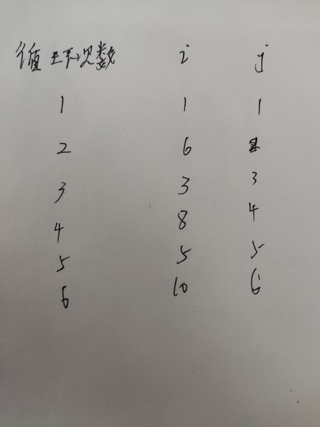 循环次数 i j
1 1 1
2 6 2
3 3 3
4 8 4
5 5 5
6 10 6